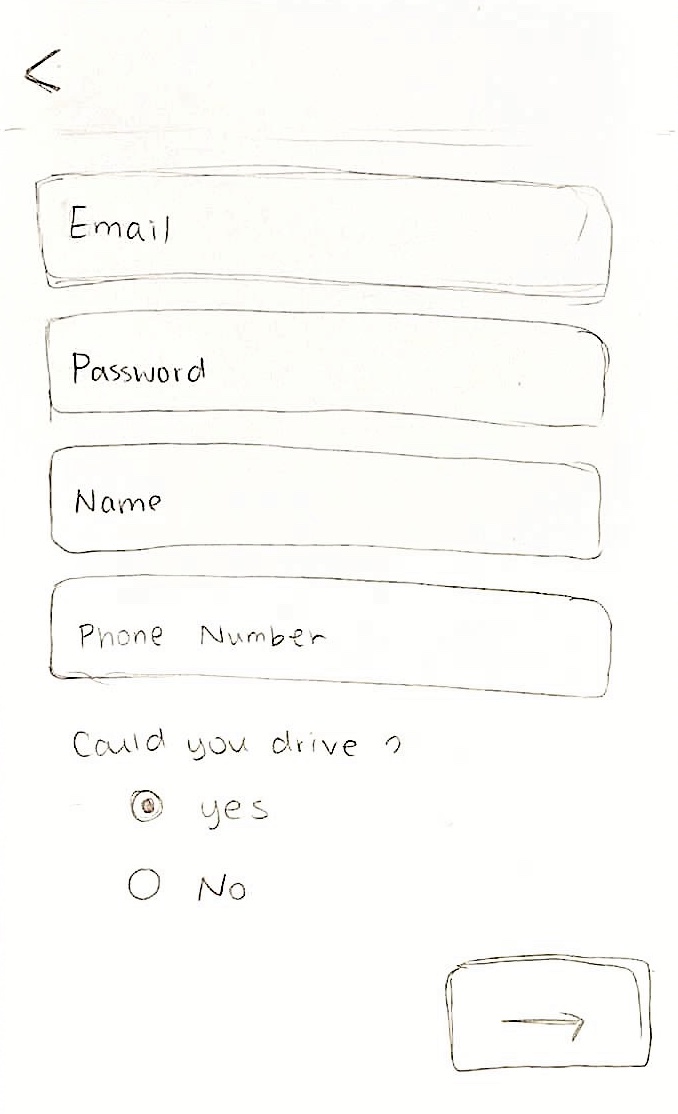 Email
Password
Name
Phone Number
Could you drive ?
yes
No